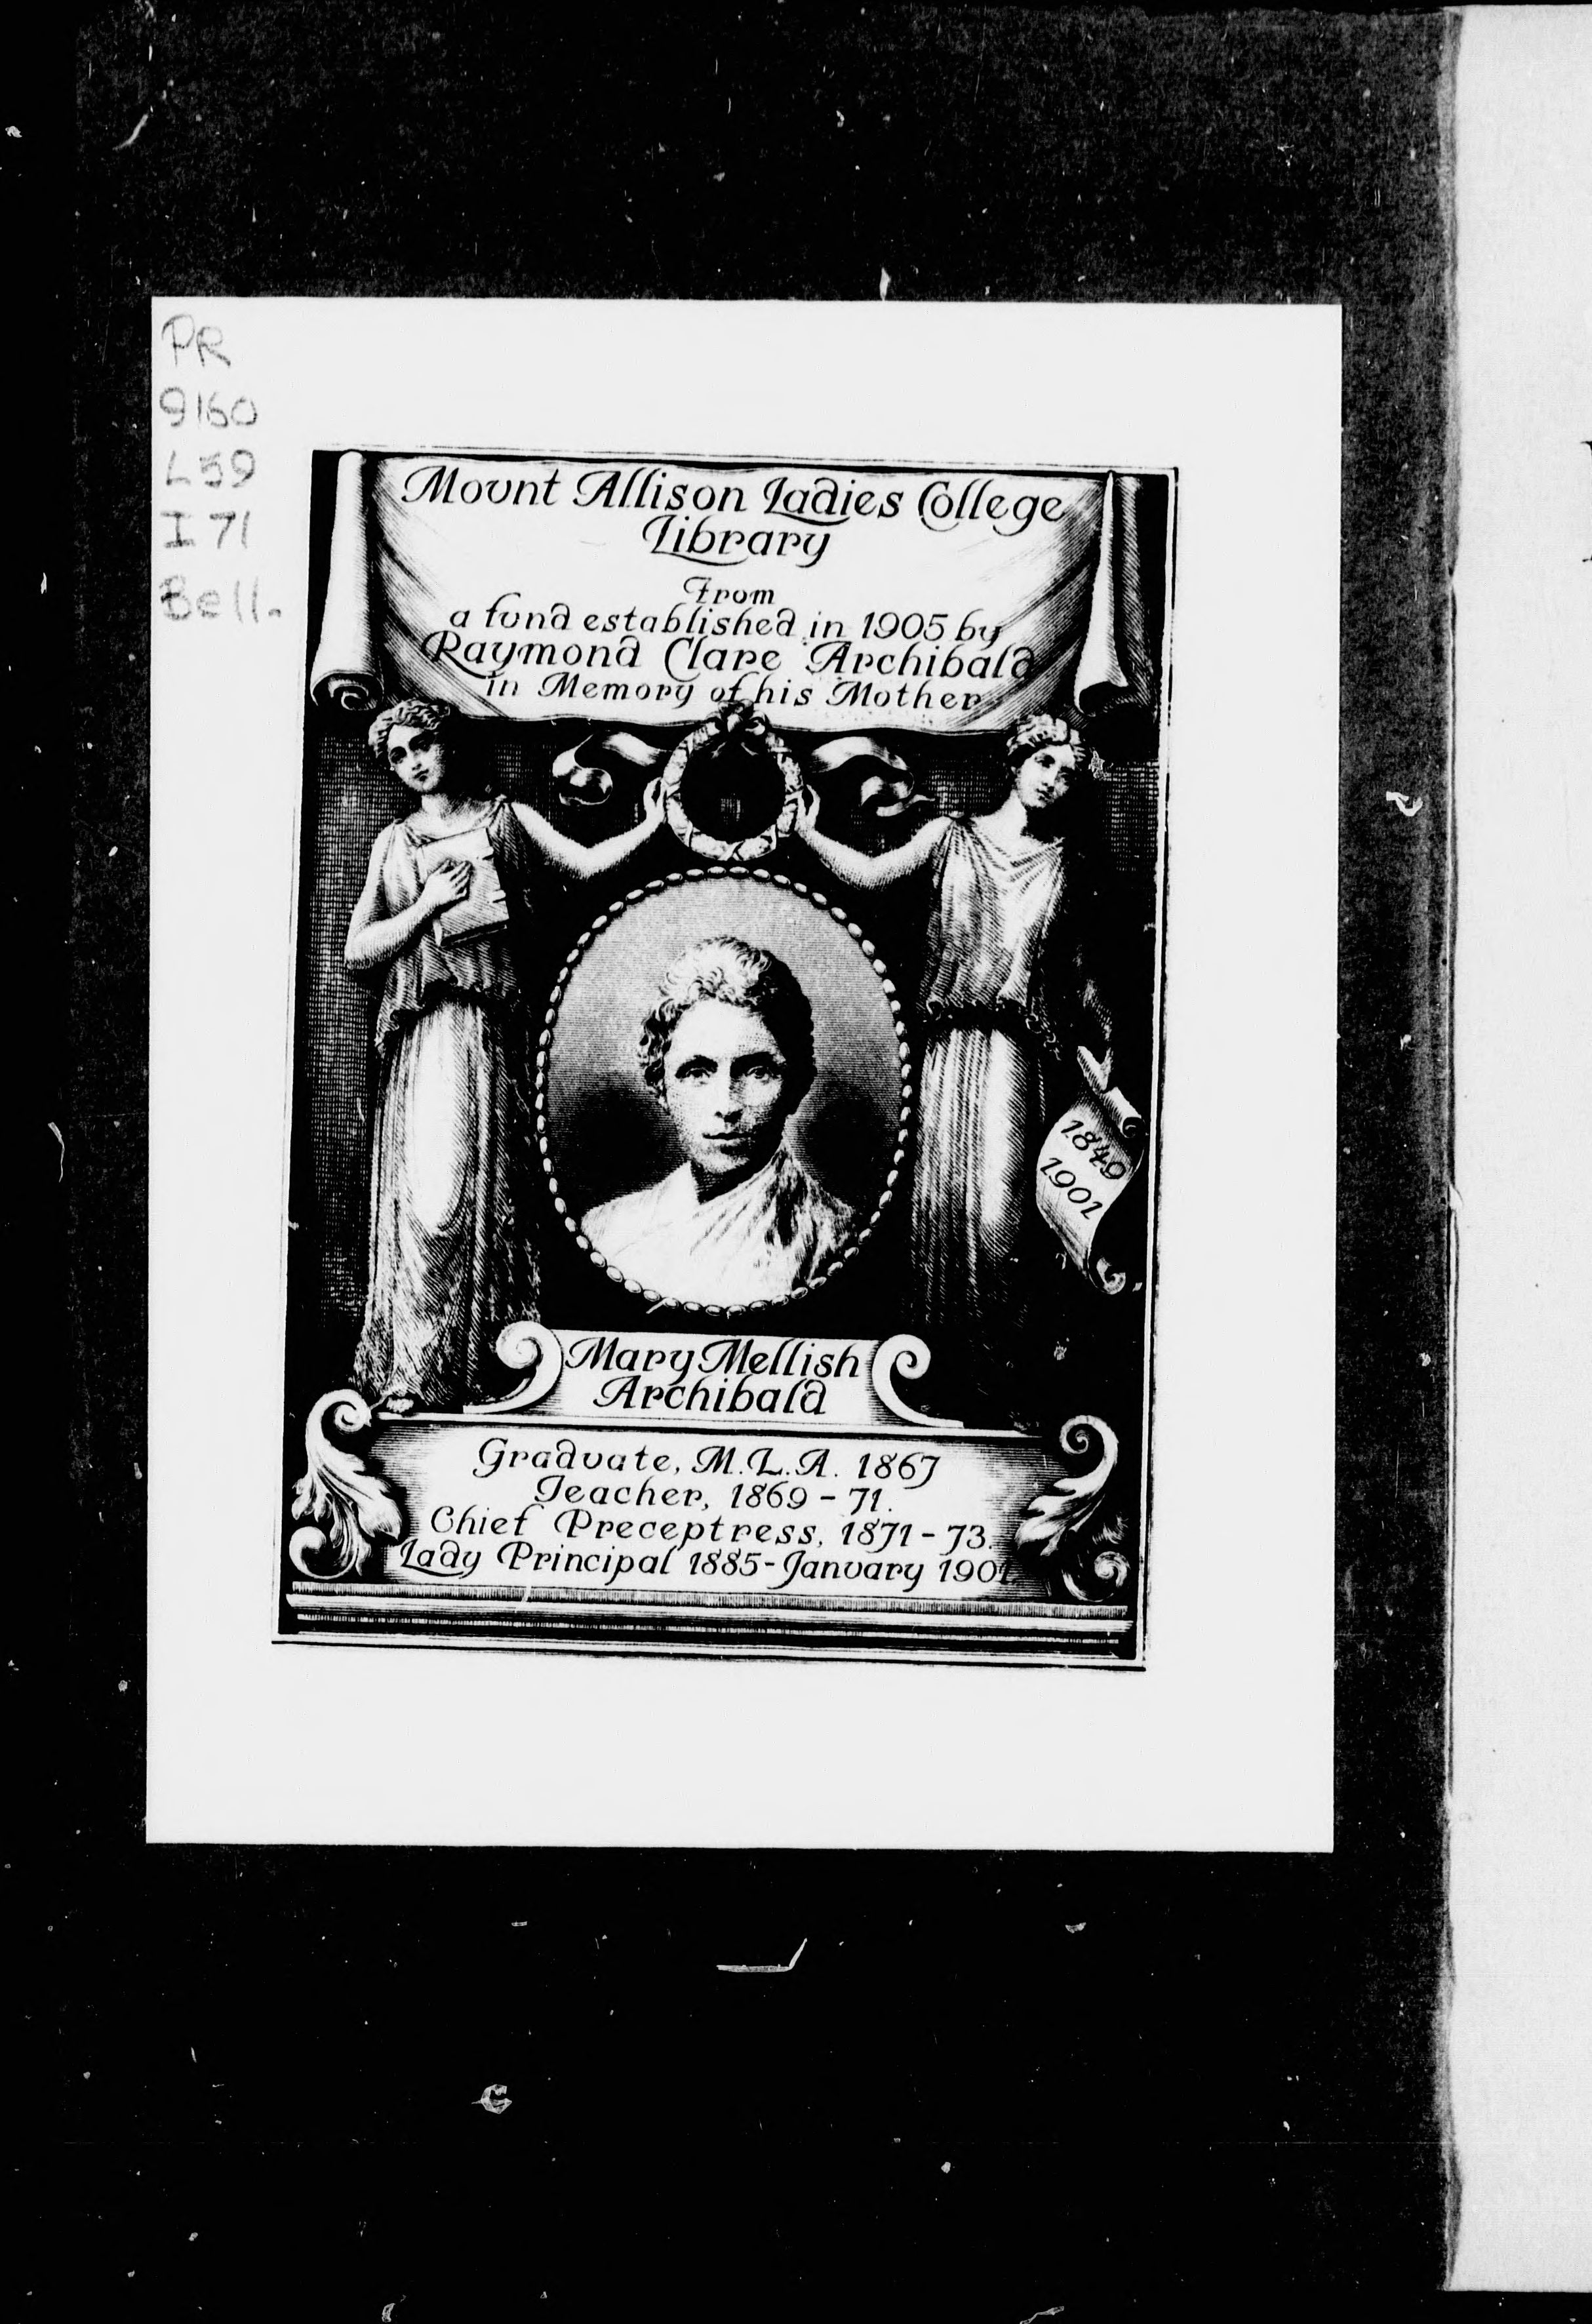 PR
9160
L59
I71
Bell.
Mount Allison Ladies College
Library
From
a fund established in 1905 by
Raymond Clare Archibald
in Memory of his Mother
1849
1901
Mary Mellish
Archibald
Graduate, M.L.A. 1867
Teacher, 1869-71.
Chief Preceptress, 1871-73.
Lady Principal 1885-January 1901.